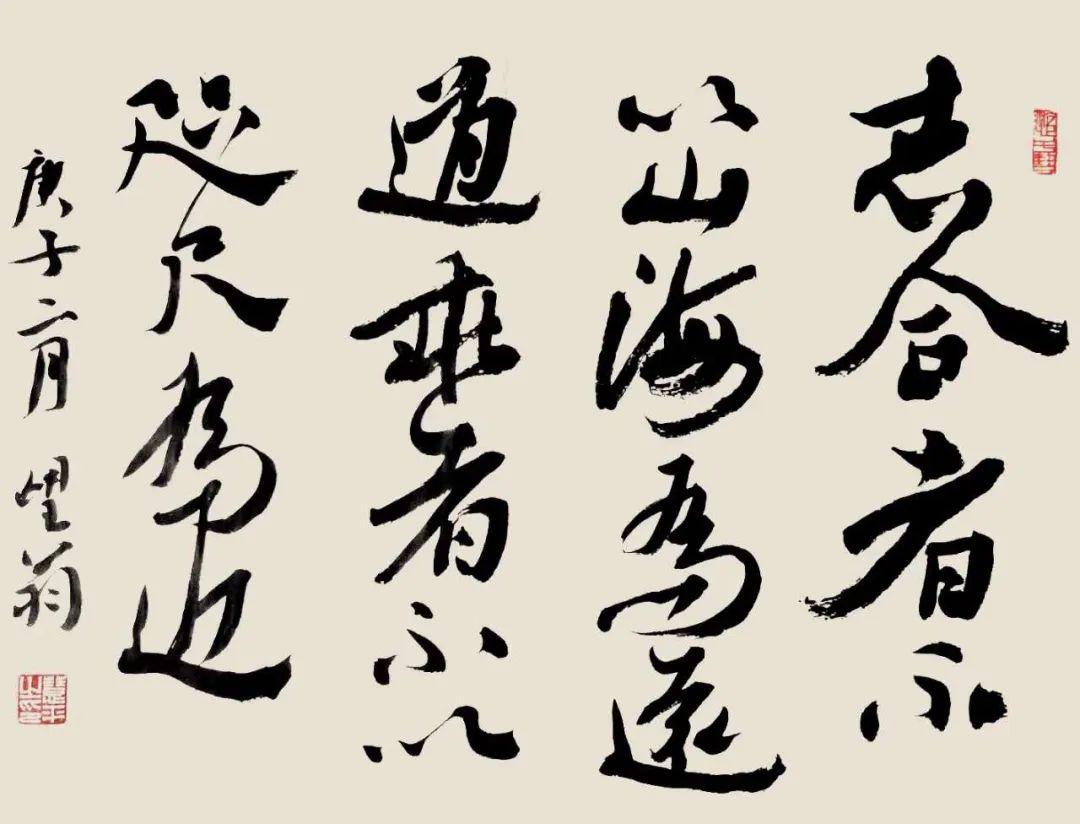 志合者不
以山海為遠
道乖者不以
咫尺為近
庚子二月 望翁